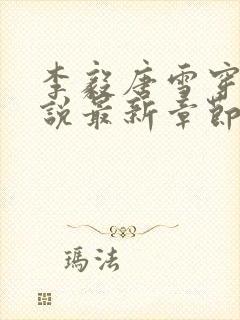 李毅唐雪穿
說最新章節
瑪法